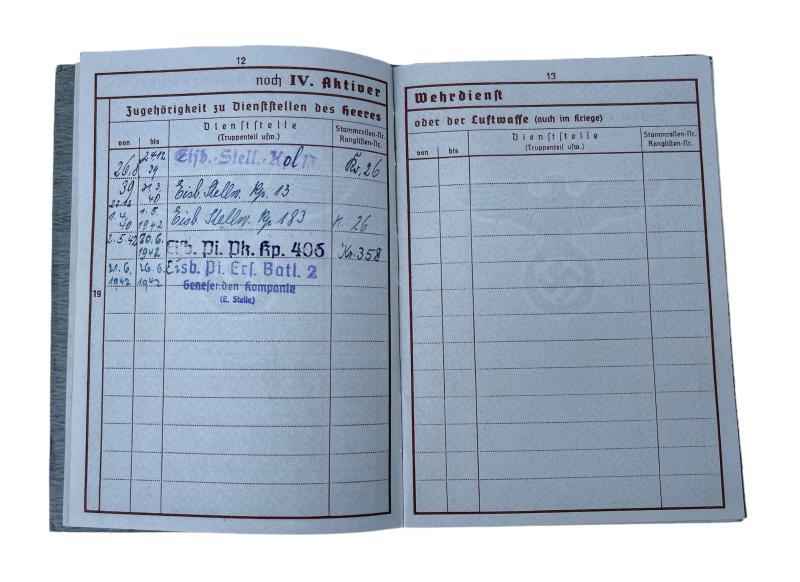 12
noch IV. Aktiver
Zugehörigkeit zu Dienststellen des Heeres
von bis Dienststelle (Truppenteil usw.) Stammrollen-Nr. Ranglisten-Nr.
26.8 39 Eisb.-Stell.-Kol 13 Kr. 26
39 31.3. 40 Eisb. Stellw. Kp. 13
1.4. 40 1.5. 1942 Eisb. Stellw. Kp 183 26
2.5.42 20.6. 1942 Eisb. Pi. Pk. Kp. 406 358
21.6. 1942 26.6. 1942 Eisb. Pi. Ers. Batl. 2
Genesenden Kompanie
(E. Stelle)
19
13
Wehrdienst
oder der Luftwaffe (auch im Kriege)
von bis Dienststelle (Truppenteil usw.) Stammrollen-Nr. Ranglisten-Nr.